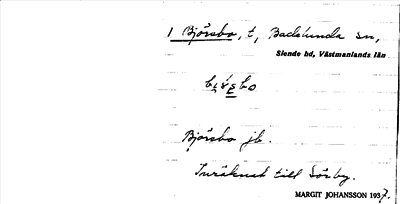 1 Björsbo, t, Badelunda sn,
Siende hd, Västmanlands län
Björsbo jb.
Inräknat till Sörby.
MARGIT JOHANSSON 1937.